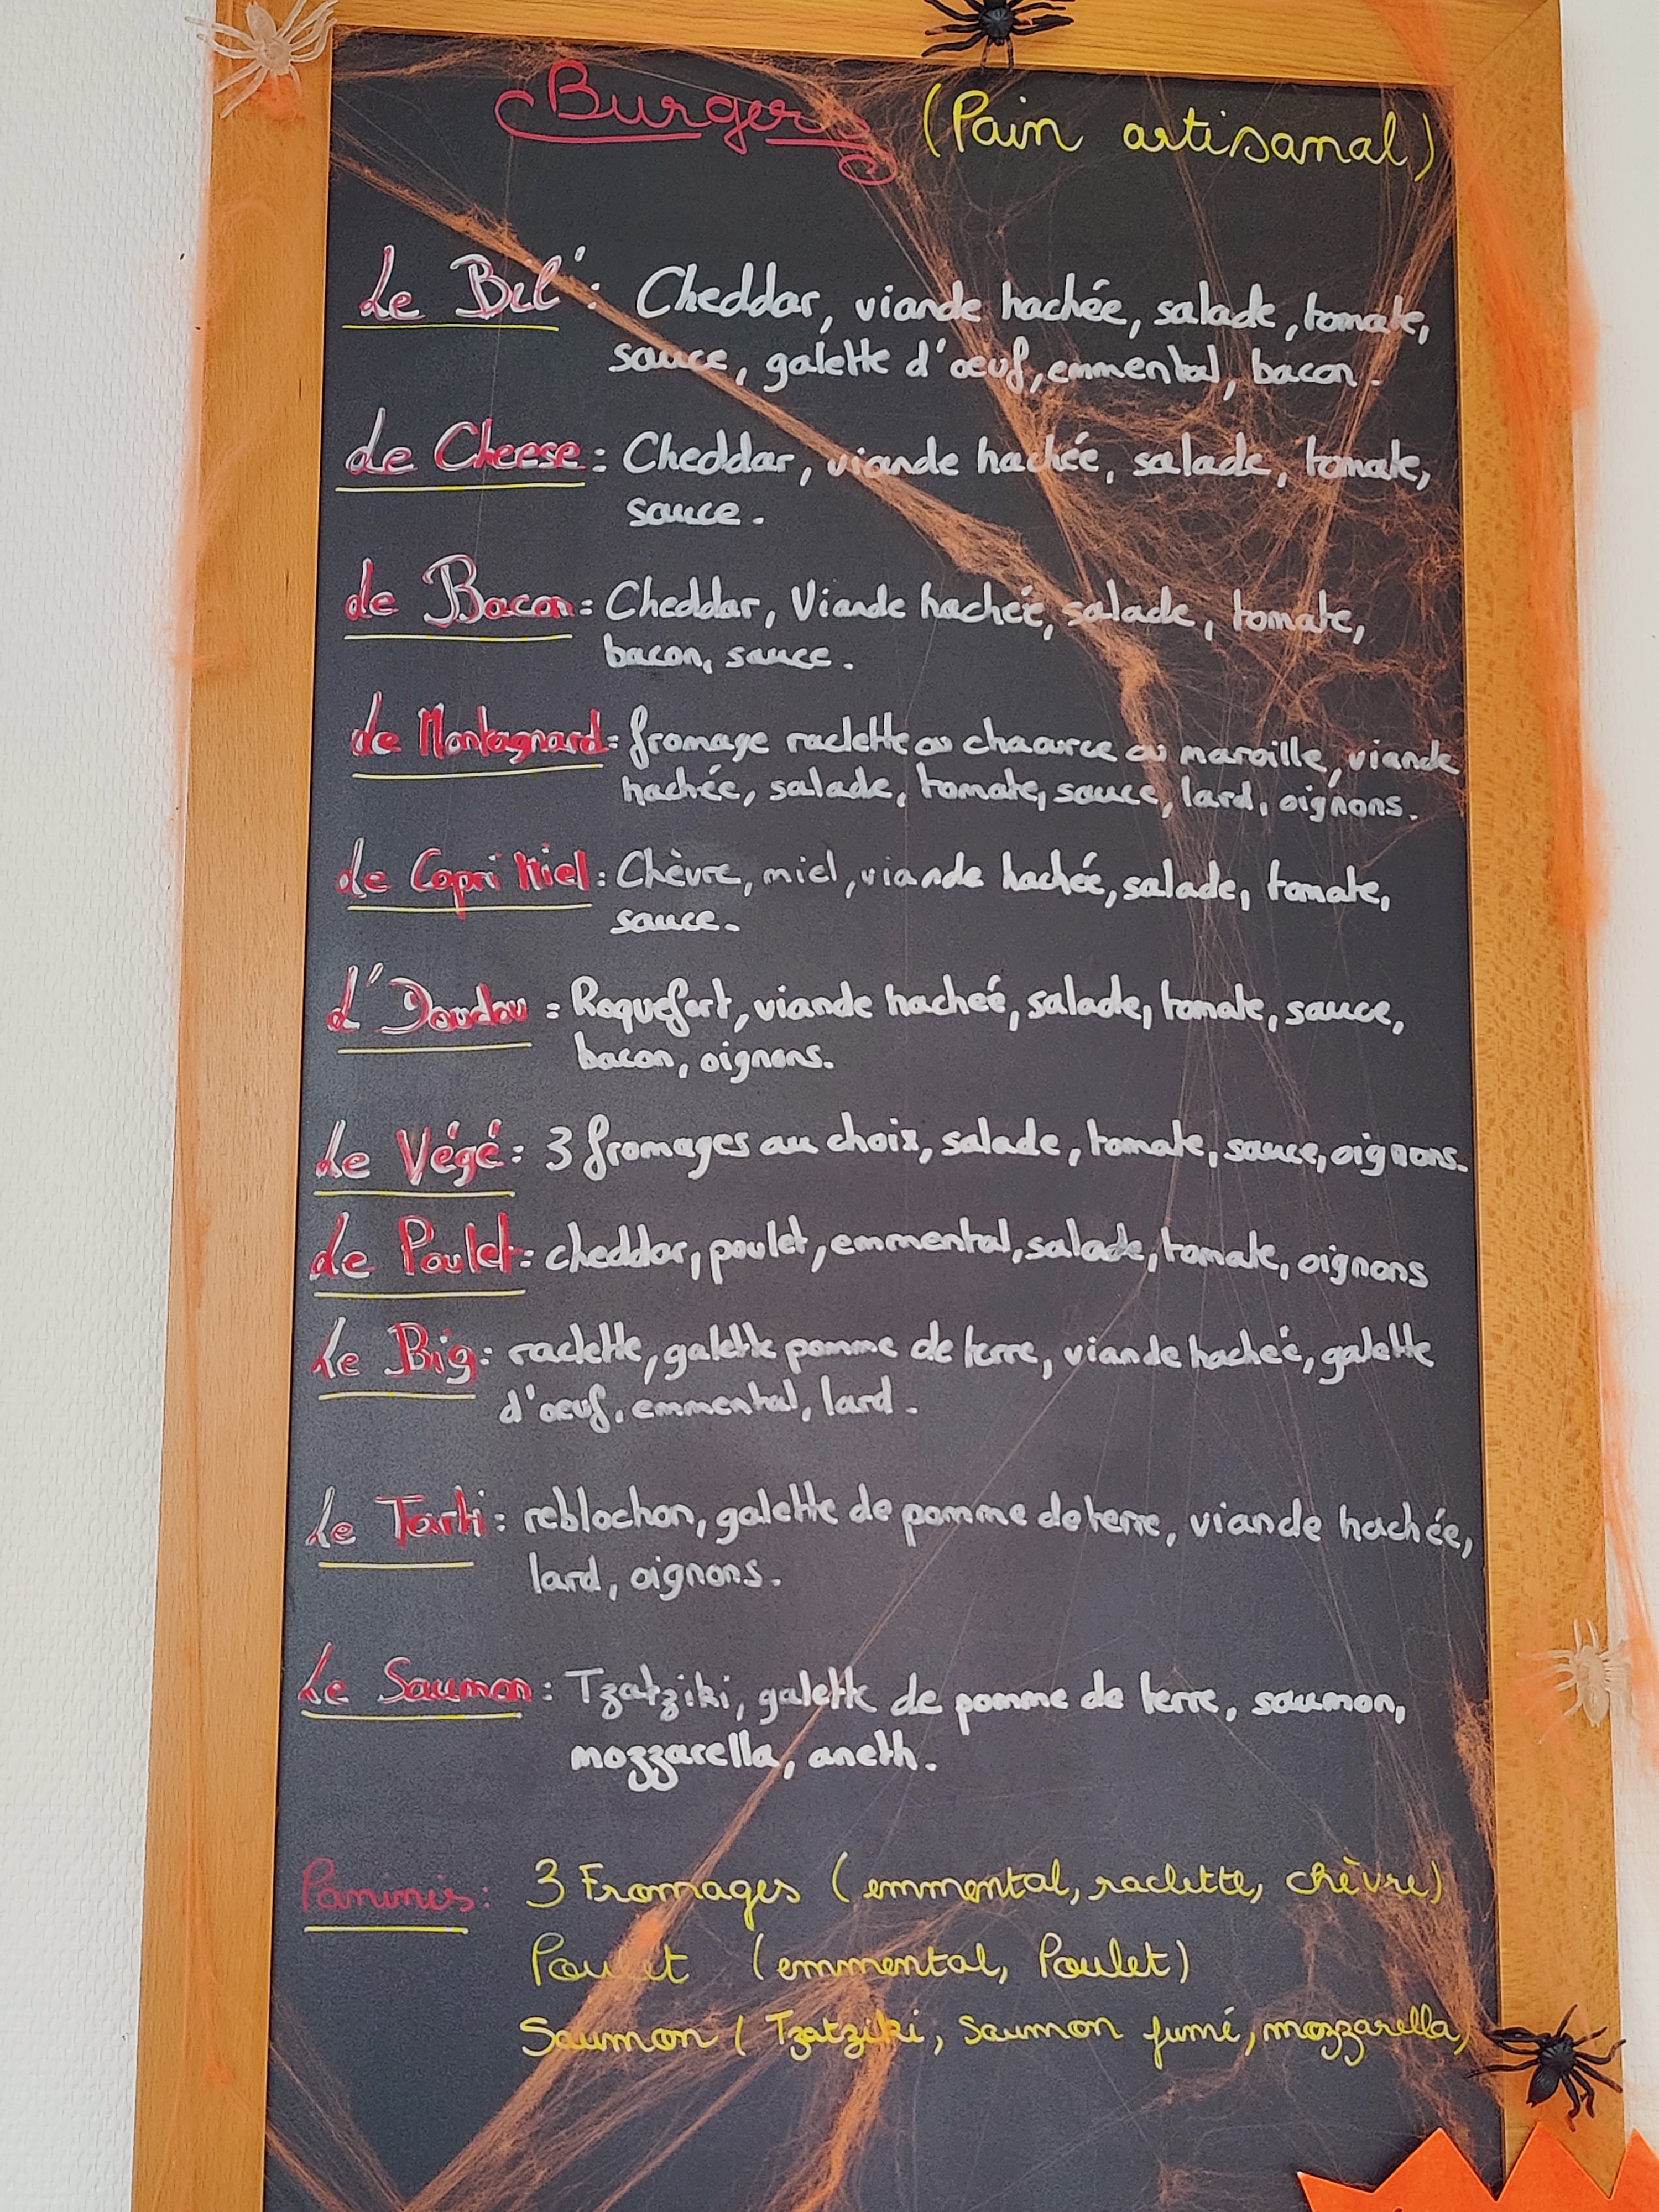 Burgers (Pain artisanal)
Le Bel': Cheddar, viande hachée, salade, tomate,
sauce, galette d'oeuf, emmental, bacon.
Le Cheese: Cheddar, viande hachée, salade, tomate,
sauce.
Le Bacon: Cheddar, Viande hachée, salade, tomate,
bacon, sauce.
Le Montagnard: fromage raclette ou chaource ou maroille, viande
hachée, salade, tomate, sauce, lard, oignons.
Le Capri Miel: Chèvre, miel, viande hachée, salade, tomate,
sauce.
L'Doudou: Roquefort, viande hacheé, salade, tomate, sauce,
bacon, oignons.
Le Végé: 3 fromages au choix, salade, tomate, sauce, oignons.
Le Poulet: cheddar, poulet, emmental, salade, tomate, oignons
Le Big: raclette, galette pomme de terre, viande hachée, galette
d'oeuf, emmental, lard.
Le Tarti: reblochon, galette de pomme de terre, viande hachée,
lard, oignons.
Le Saumon: Tzatziki, galette de pomme de terre, saumon,
mozzarella, aneth.
Paninis: 3 Fromages (emmental, raclette, chèvre)
Poulet (emmental, Poulet)
Saumon (Tzatziki, Saumon fumé, mozzarella)